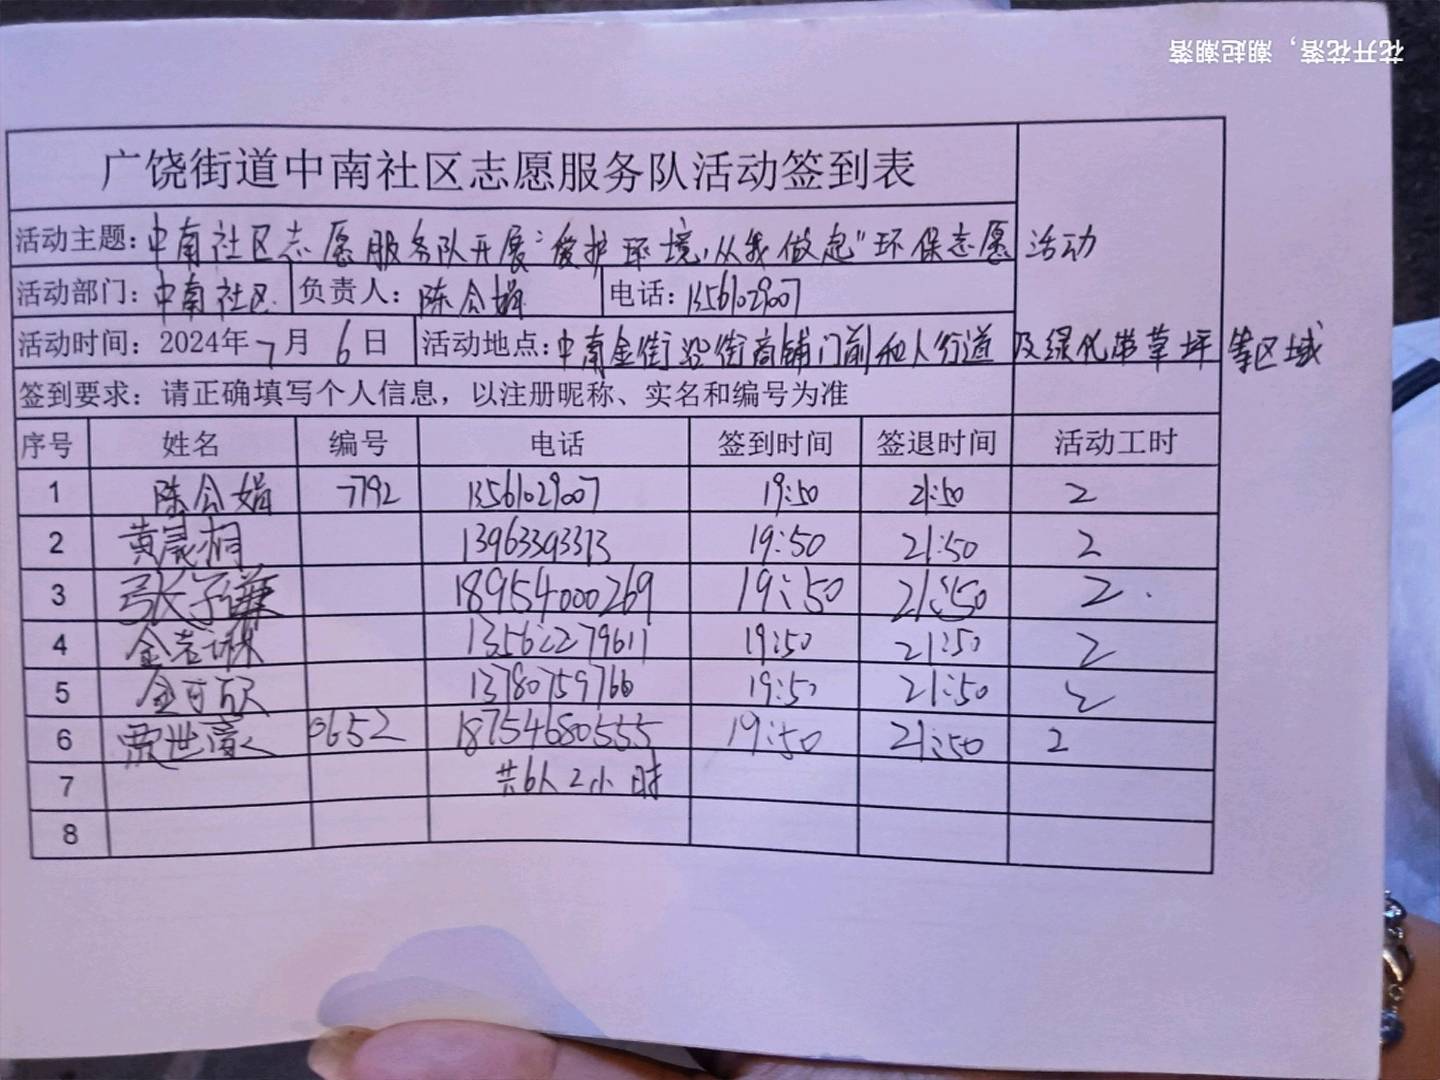 花开花落，潮起潮落
广饶街道中南社区志愿服务队活动签到表
活动主题：中南社区志愿服务队开展“爱护环境，从我做起”环保志愿活动
活动部门：中南社区 负责人：陈会娟 电话：13561029007
活动时间：2024年7月6日 活动地点：中南金街沿街商铺门前和人行道及绿化带草坪等区域
签到要求：请正确填写个人信息，以注册昵称、实名和编号为准
序号 姓名 编号 电话 签到时间 签退时间 活动工时
1 陈会娟 7792 13561029007 19:50 21:50 2
2 黄晟桐 13963393313 19:50 21:50 2
3 张子谦 18954000269 19:50 21:50 2
4 金若琳 13562279611 19:50 21:50 2
5 金可欣 13780759766 19:50 21:50 2
6 贾世 0652 18754680555 19:50 21:50 2
7 共6人2小时
8